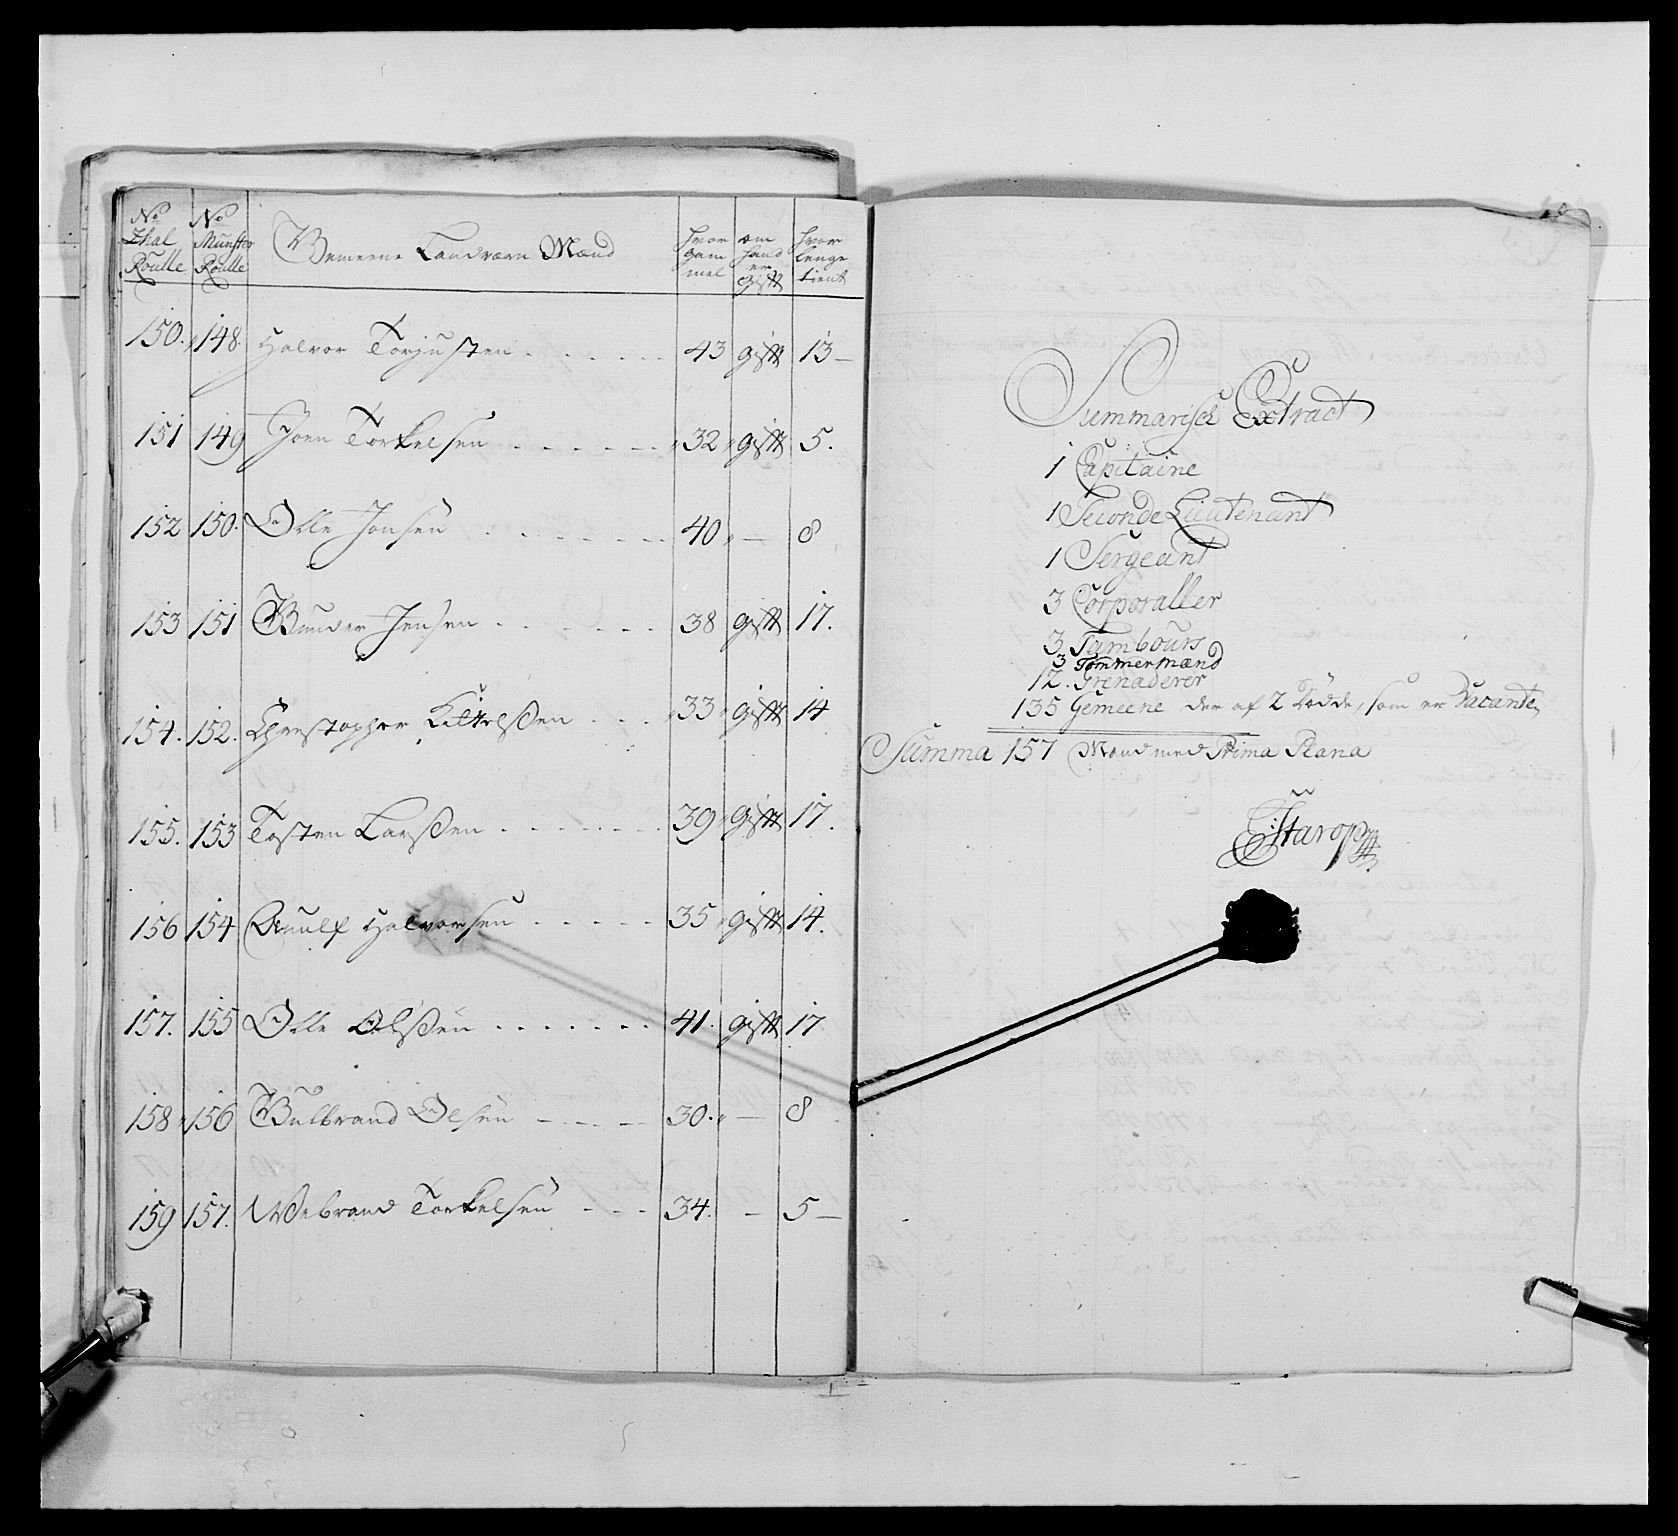 No Zhal Roulle | No Munster Roulle | Gemeene Landværn Mænd | hvor gam mel | om hand er gift | hvor lenge tient
150. 148. Halvor Torjusten 43 gift 13
151 149 Joen Torkelsen 32 gift 5.
152 150. Olle Jonsen 40 — 8
153 151 Gunder Jensen 38 gift 17.
154. 152. Christopher Kittelßen 33 gift 14
155. 153 Tosten Larßen 39 gift 17.
156 154 Halvorsen 35 gift 14.
157. 155 Olle Olßen 41. gift 17
158 156 Gulbrand Olsen 30. — 8
159 157. Webrand Torkelsen 34. — 5
Summarisch Extract
1 Capitaine
1 Seconde Lieutenant
1 Sergeant
3 Corporaller
3 Tambours
3 Tømmermænd
12. Grenaderer
135 Gemeene der af 2 Dödde, som er Vacante
Summa 157 Mand med Prima Plana